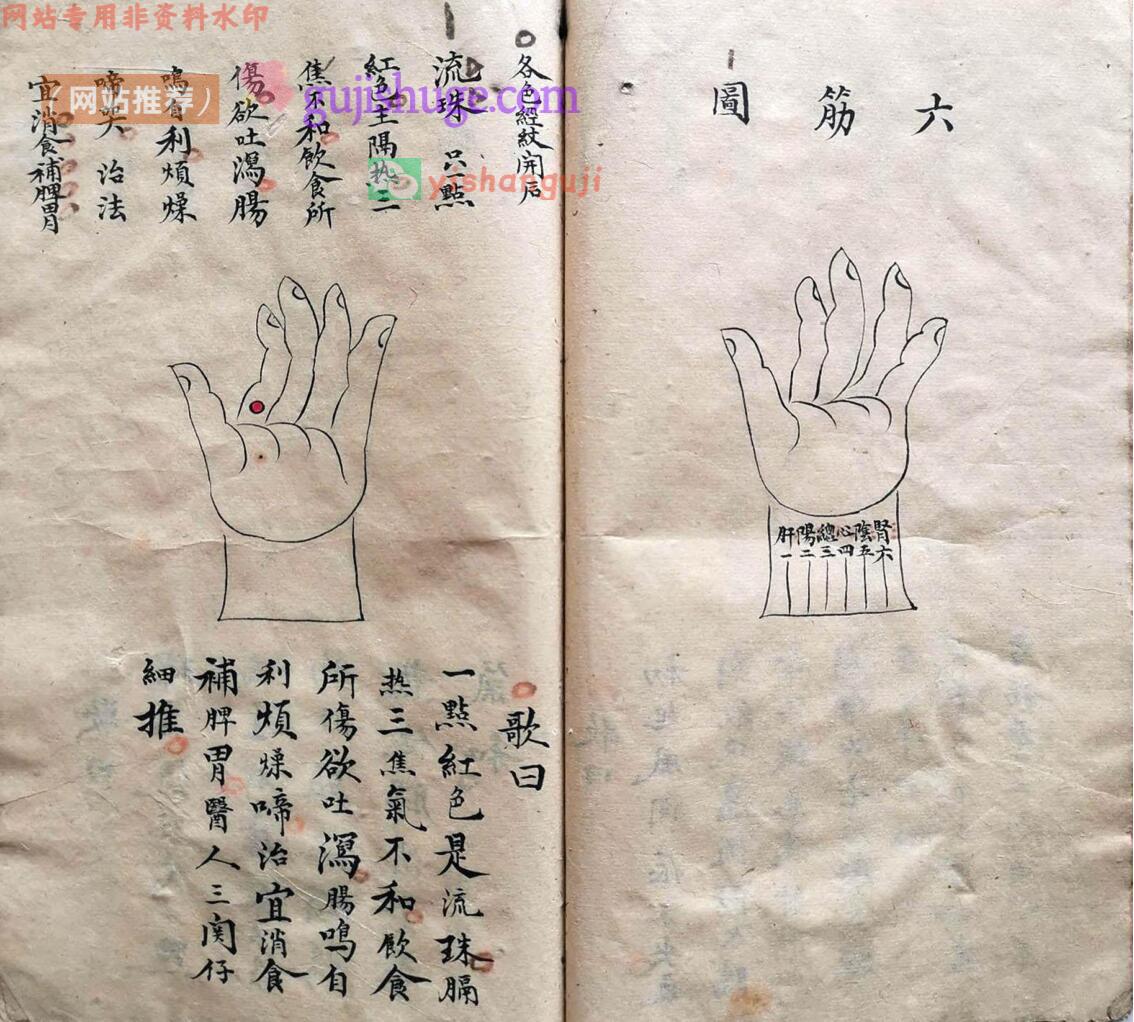 网站专用非资料水印
(网站推荐)
gujishuge.com
yishanguji
六筋圖
腎陰心總陽肝
六五四三二一
各色經紋開后
流珠只一點
紅色主隔热三
焦不和飲食所
傷欲吐瀉腸
鳴自利煩燥
啼哭治法
宜消食補脾胃
歌曰
一點紅色是流珠膈
热三焦氣不和飲食
所傷欲吐瀉腸鳴自
利煩燥啼治宜消食
補脾胃醫人三関仔
細推